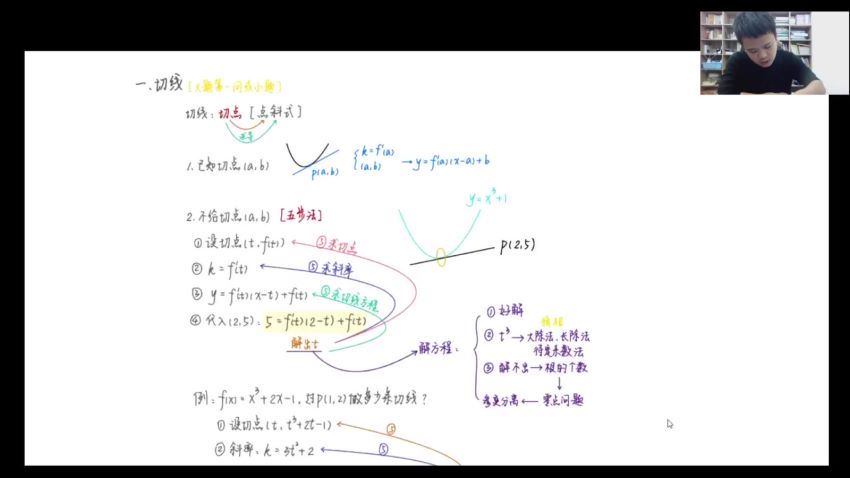 一、切线 [大题第一问或小题]
切线：切点 [点斜式]
求导
1. 已知切点(a,b)
P(a,b)
k=f'(a)
(a,b)
→y=f'(a)(x-a)+b
y=x³+1
2. 不给切点(a,b) [五步法]
P(2,5)
① 设切点(t, f(t)) ⑤求切点
② k=f'(t) ⑤求斜率
③ y=f'(t)(x-t)+f(t) ⑤求切线方程
④ 代入(2,5)：5=f'(t)(2-t)+f(t)
解出t
解方程：
① 好解
② t³→大除法、长除法
待定系数法
③ 解不出→根的个数
↓
参变分离←零点问题
例：f(x)=x³+2x-1，过P(1,2)做多少条切线？
① 设切点(t, t³+2t-1) ⑤
② 斜率：k=3t²+2 ⑤